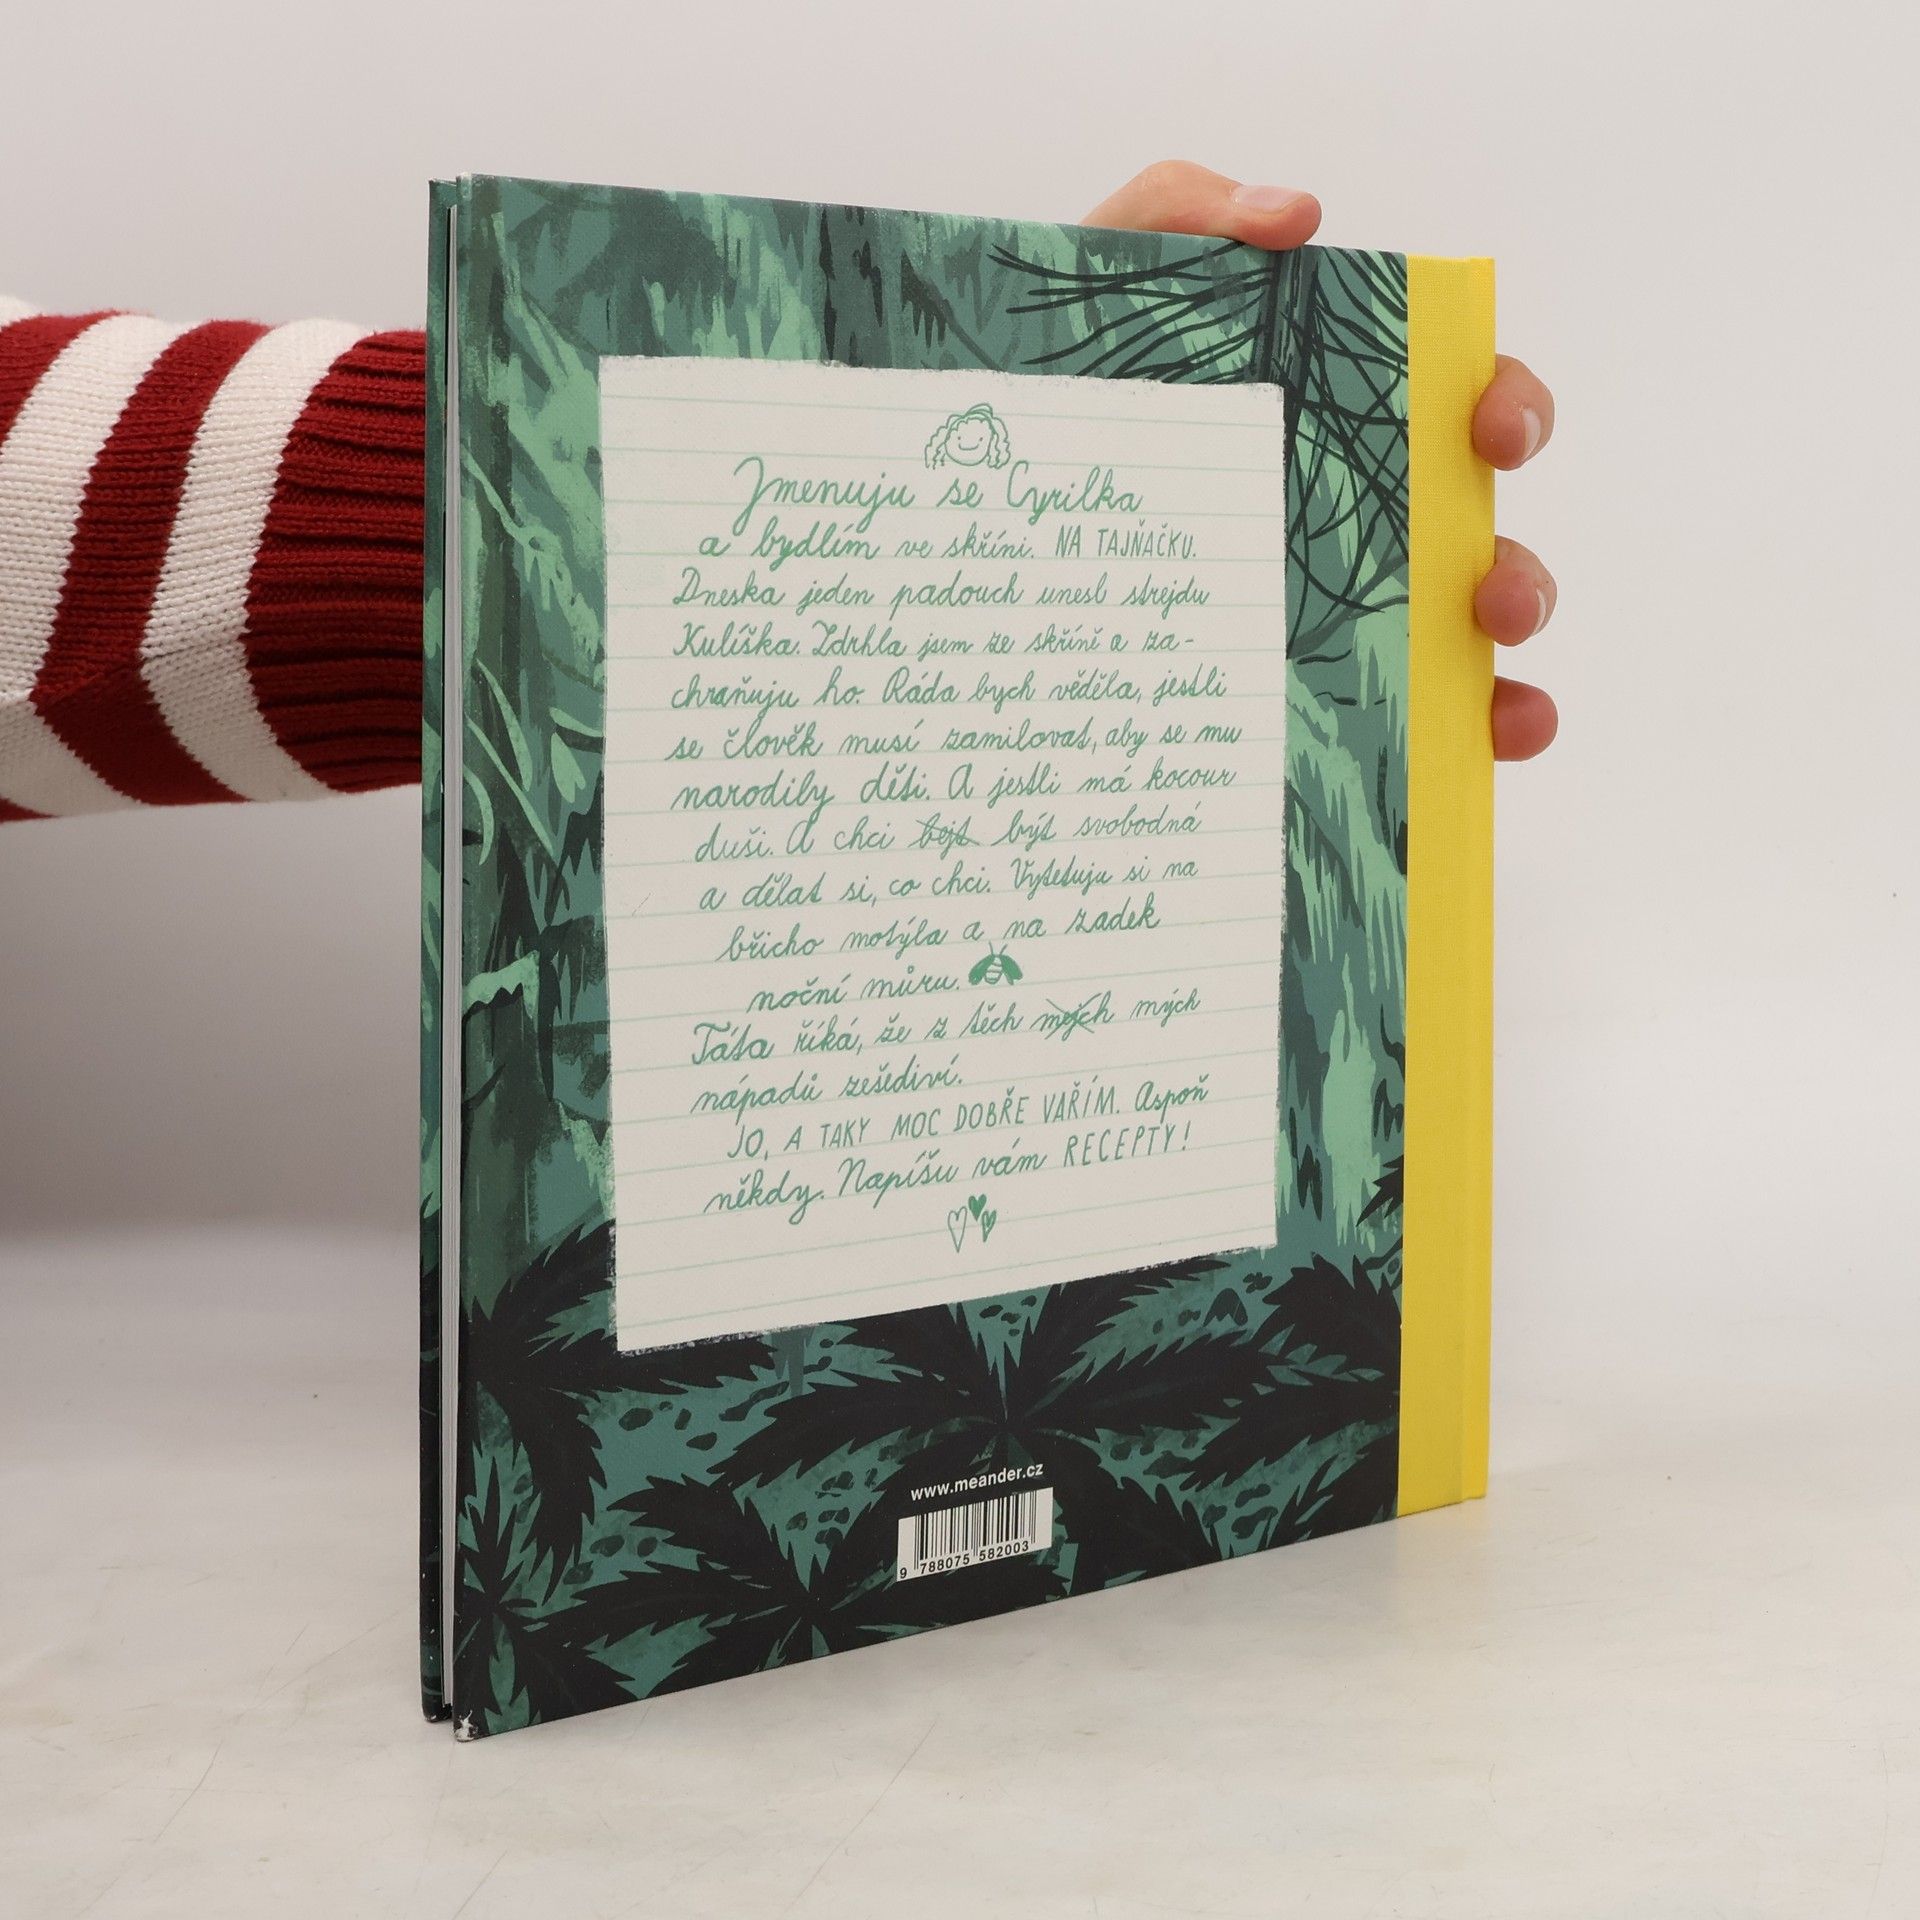 Jmenuju se Cyrilka
a bydlím ve skříni. NA TAJŇAČKU.
Dneska jeden padouch unesl strejdu
Kulíška. Zdrhla jsem ze skříně a za-
chraňuju ho. Ráda bych věděla, jestli
se člověk musí zamilovat, aby se mu
narodily děti. A jestli má kocour
duši. A chci bejt být svobodná
a dělat si, co chci. Vytetuju si na
břicho motýla a na zadek
noční můru.
Táta říká, že z těch mejch mých
nápadů zešediví.
JO, A TAKY MOC DOBŘE VAŘÍM. Aspoň
někdy. Napíšu vám RECEPTY!
www.meander.cz
9 788075 582003